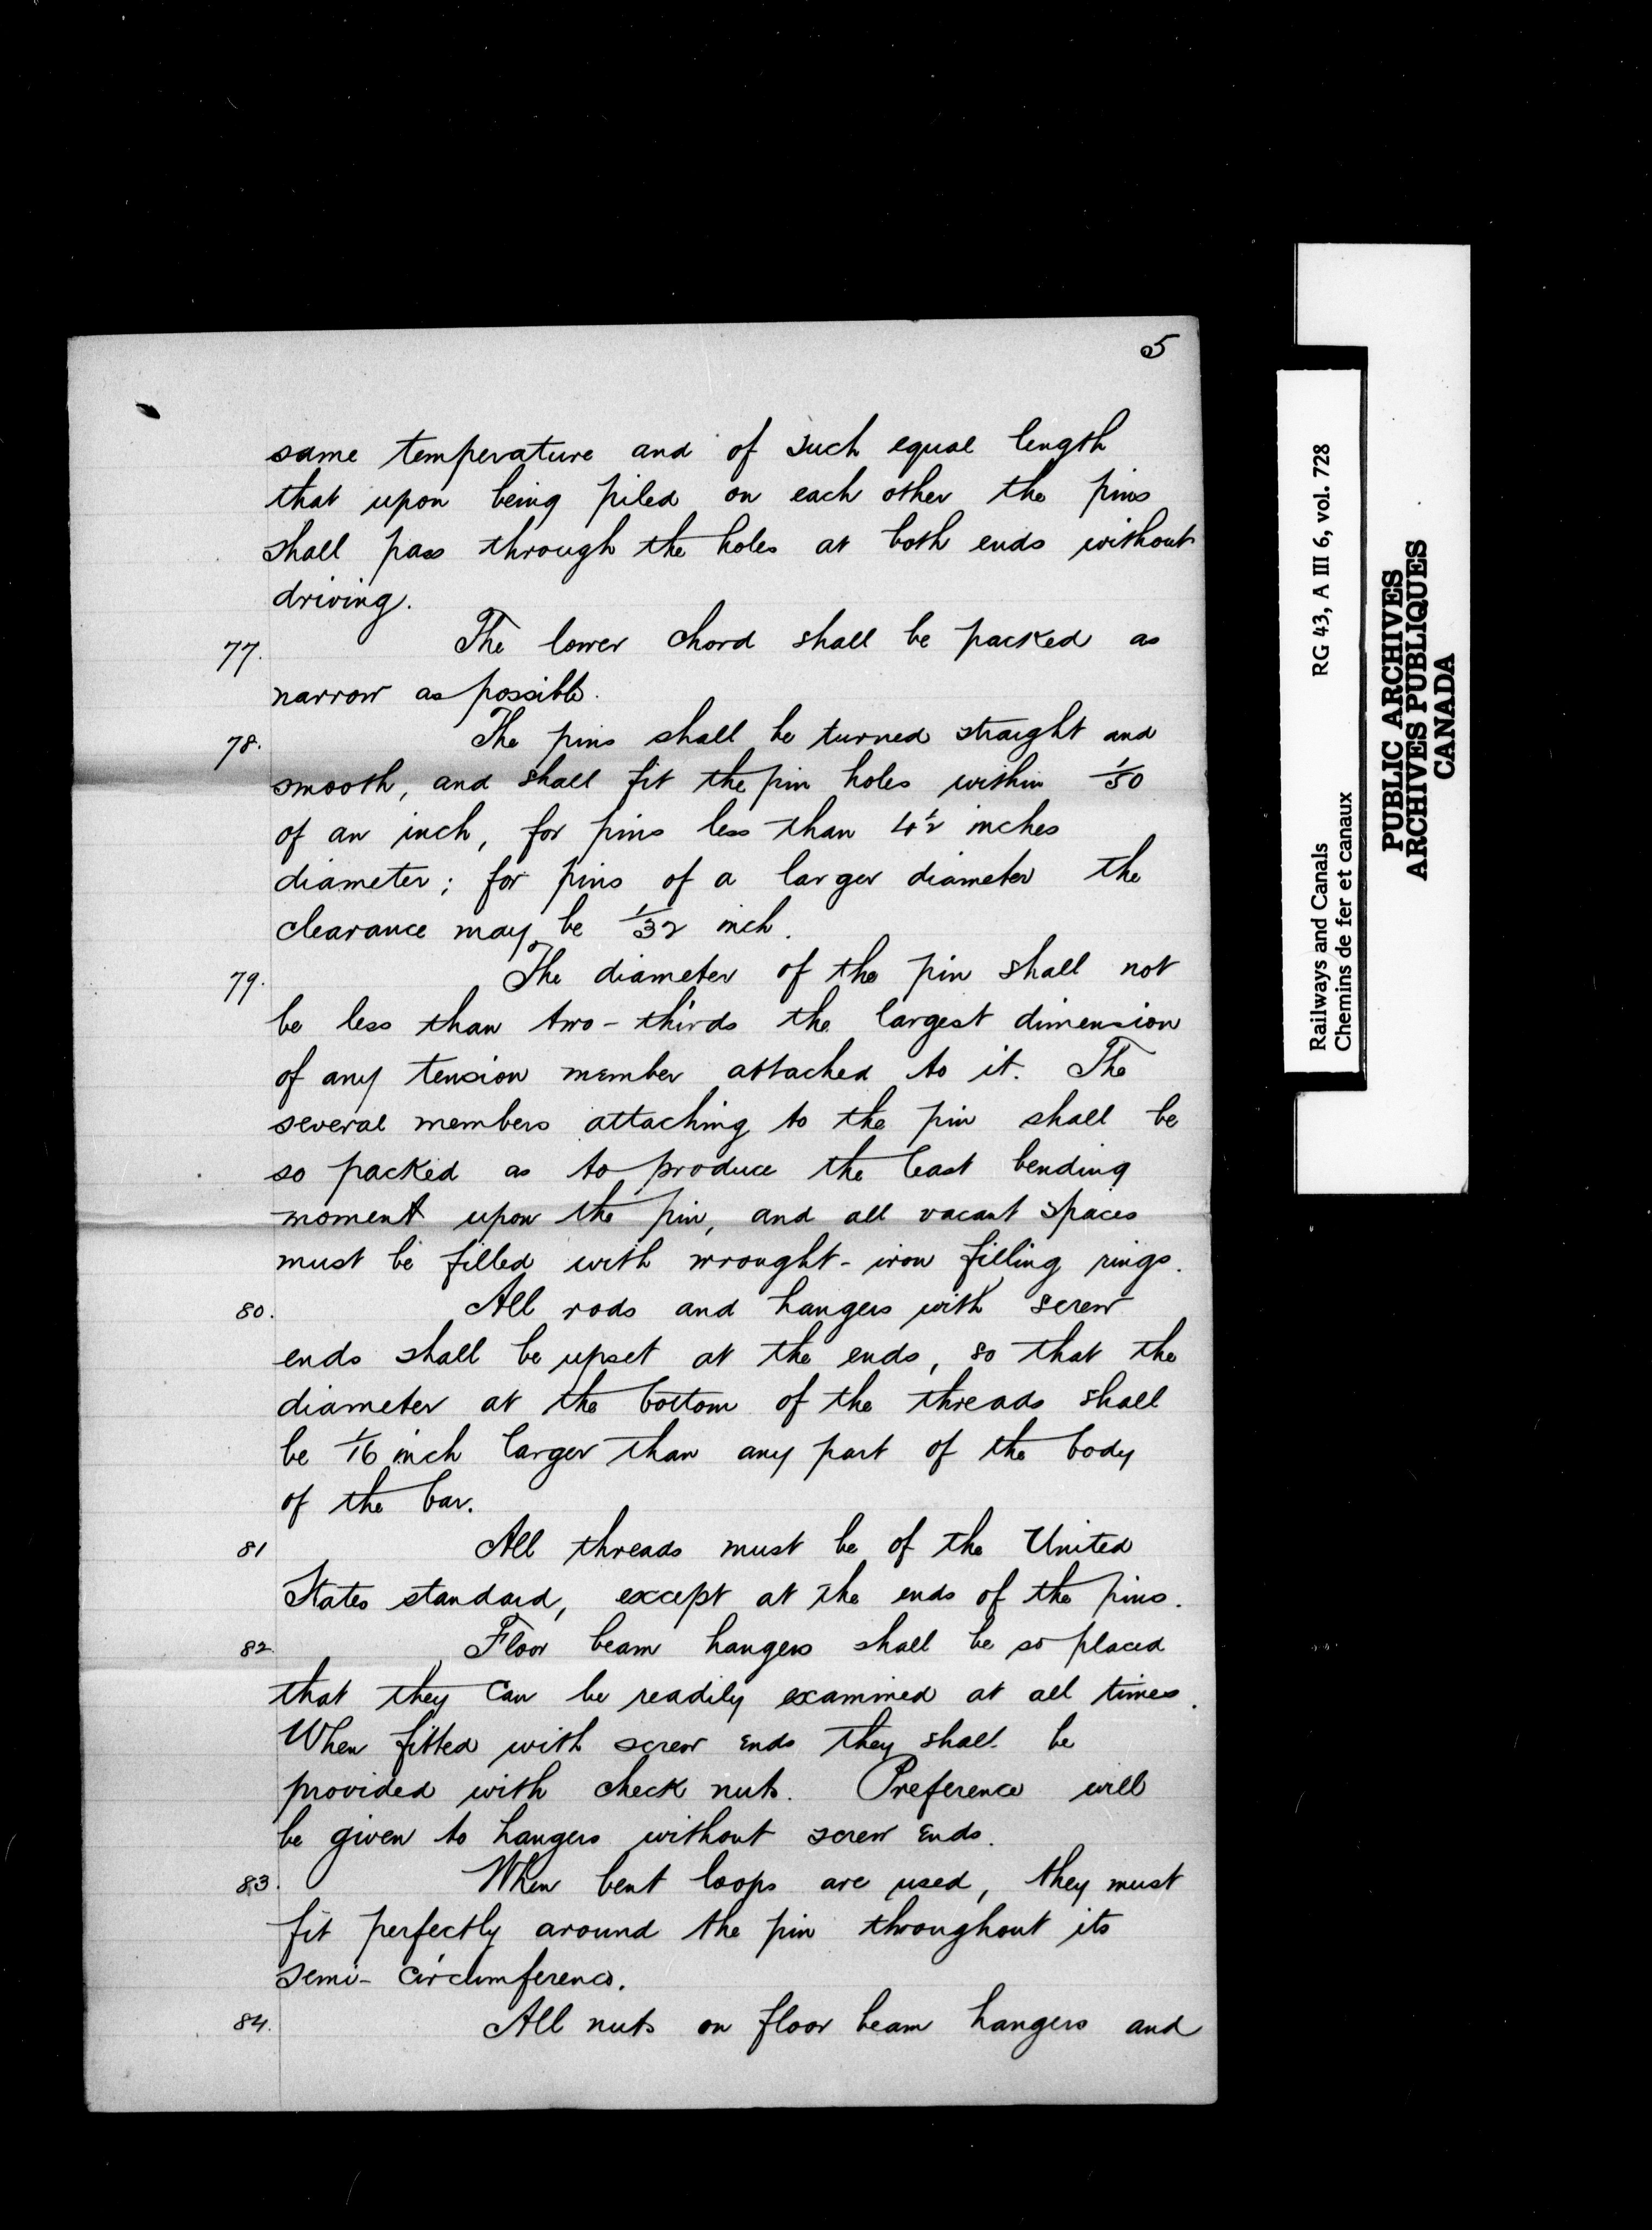 5
same temperature and of such equal length
that upon being piled on each other the pins
shall pass through the holes at both ends without
driving.
77. The lower chord shall be packed as
narrow as possible.
78. The pins shall be turned straight and
smooth, and shall fit the pin holes within 1/50
of an inch, for pins less than 4 1/2 inches
diameter; for pins of a larger diameter the
clearance may be 1/32 inch.
79. The diameter of the pin shall not
be less than two-thirds the largest dimension
of any tension member attached to it. The
several members attaching to the pin shall be
so packed as to produce the least bending
moment upon the pin, and all vacant spaces
must be filled with wrought-iron filling rings.
80. All rods and hangers with screw
ends shall be upset at the ends, so that the
diameter at the bottom of the threads shall
be 1/16 inch larger than any part of the body
of the bar.
81 All threads must be of the United
States standard, except at the ends of the pins.
82. Floor beam hangers shall be so placed
that they can be readily examined at all times.
When fitted with screw ends they shall be
provided with check nuts. Preference will
be given to hangers without screw ends.
83. When bent loops are used, they must
fit perfectly around the pin throughout its
semi-circumference.
84. All nuts on floor beam hangers and
Railways and Canals RG 43, A III 6, vol. 728
Chemins de fer et canaux
PUBLIC ARCHIVES
ARCHIVES PUBLIQUES
CANADA